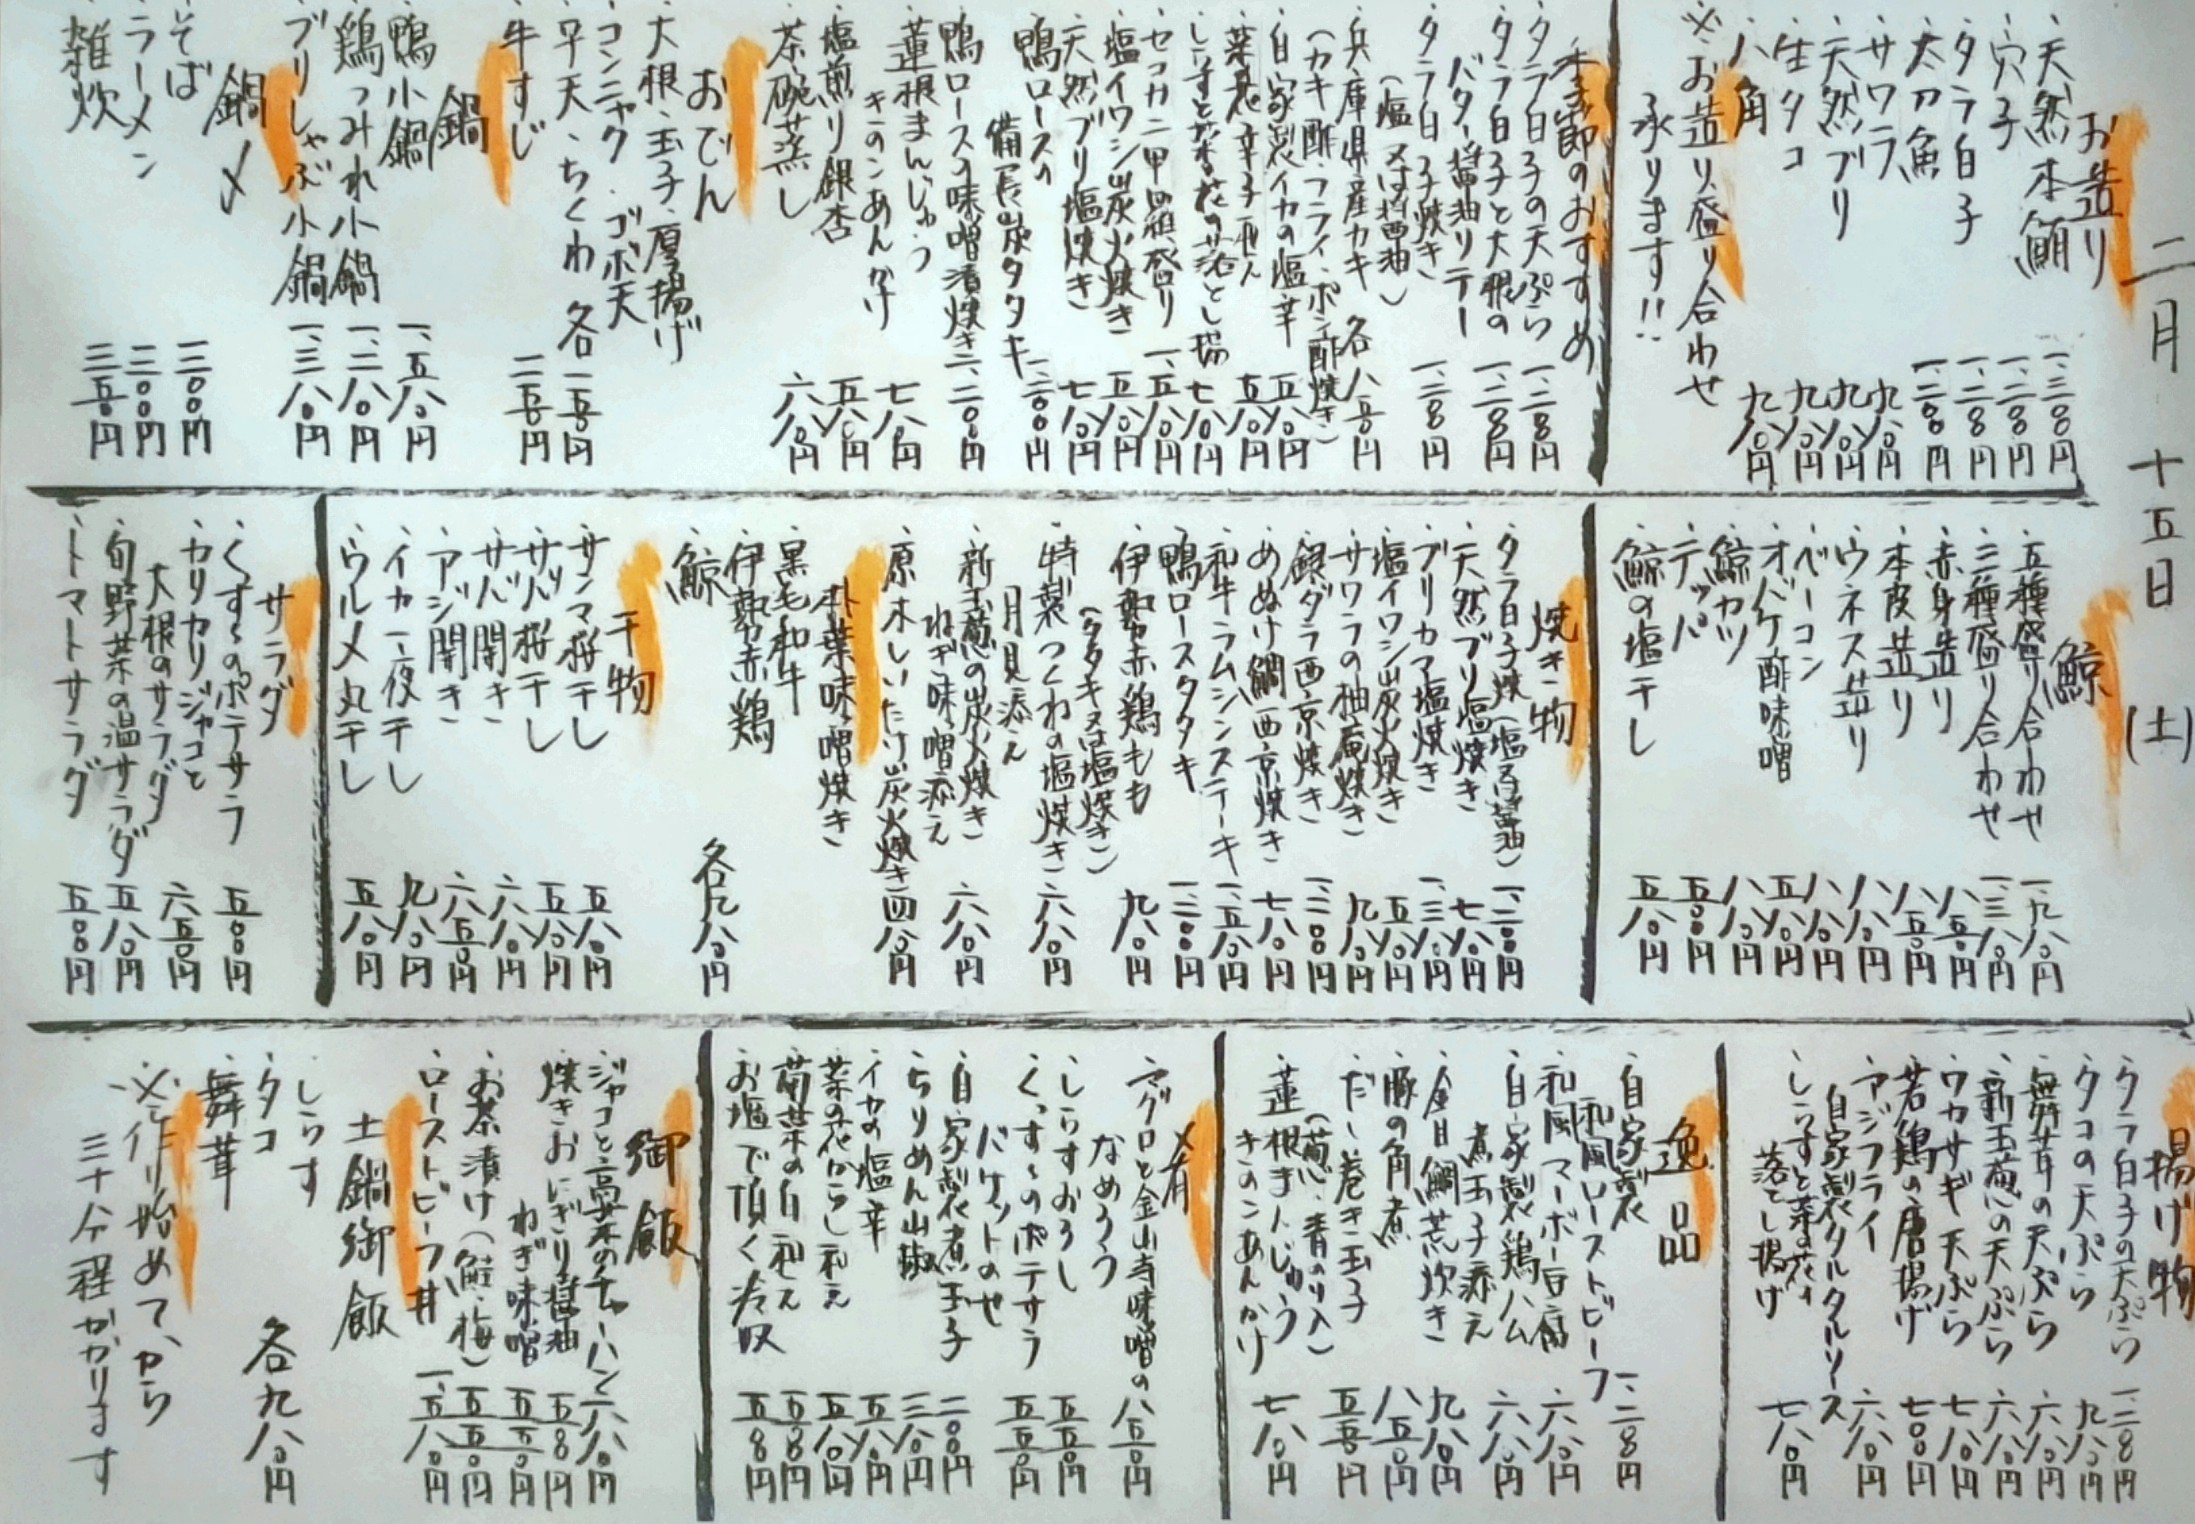 二月十五日(土)
お造り
・天然本鮪 一、三八〇円
・穴子 一、二八〇円
・タラ白子 一、二八〇円
・太刀魚 一、二八〇円
・サワラ 九八〇円
・天然ブリ 九八〇円
・生タコ 九八〇円
・八角 九八〇円
※お造り盛り合わせ
承ります!!
季節のおすすめ
・タラ白子の天ぷら 一、二八〇円
・タラ白子と大根の
バター醤油ソテー 一、二八〇円
・タラ白子焼き
(塩又は醤油) 一、二八〇円
・兵庫県産カキ 各八五〇円
(カキ酢・フライ・ポン酢焼き)
・自家製イカの塩辛 五八〇円
・菜花辛子和え 五五〇円
・しらすと菜の花の落とし揚 七八〇円
・セコガニ甲羅盛り 一、五八〇円
・塩イワシ炭火焼き 五八〇円
・天然ブリ塩焼き 七八〇円
・鴨ロースの
備長炭タタキ 一、二〇〇円
・鴨ロースの味噌漬焼き 一、二〇〇円
・蓮根まんじゅう
きのこあんかけ 七八〇円
・塩煎り銀杏 五八〇円
・茶碗蒸し 六八〇円
おでん
・大根・玉子・厚揚げ
・コンニャク・ゴボ天
・平天・ちくわ 各二五〇円
・牛すじ 三五〇円
鍋
・鴨小鍋 一、五八〇円
・鶏つみれ小鍋 一、二八〇円
・ブリしゃぶ小鍋 一、三八〇円
鍋〆
・そば 二〇〇円
・ラーメン 二〇〇円
・雑炊 三五〇円
鯨
・五種盛り合わせ 一、九八〇円
・三種盛り合わせ 一、三八〇円
・赤身造り 八五〇円
・本皮造り 八五〇円
・ウネス造り 八八〇円
・ベーコン 八八〇円
・オバケ酢味噌 五八〇円
・鯨カツ 八八〇円
・テッパ 五五〇円
・鯨の塩干し 五八〇円
焼き物
・タラ白子焼(塩又は醤油) 一、二八〇円
・天然ブリ塩焼き 七八〇円
・ブリカマ塩焼き 一、三八〇円
・塩イワシ炭火焼き 五八〇円
・サワラの柚庵焼き 九八〇円
・銀ダラ西京焼き 一、三〇〇円
・めぬけ鯛西京焼き 七八〇円
・和牛ラムシンステーキ 一、五八〇円
・鴨ロースタタキ 一、二〇〇円
・伊勢赤鶏もも
(タタキ又は塩焼き) 九八〇円
・特製つくねの塩焼き 六八〇円
月見添え
・新玉葱の炭火焼き
ねぎ味噌添え 六八〇円
・原木しいたけ炭火焼き 四八〇円
朴葉味噌焼き
・黒毛和牛
・伊勢赤鶏
・鯨 各九八〇円
干物
・サンマ桜干し 五八〇円
・サバ桜干し 五八〇円
・サバ開き 六八〇円
・アジ開き 六五〇円
・イカ一夜干し 九八〇円
・ウルメ丸干し 五八〇円
サラダ
・くすくすのポテサラ 五〇〇円
・カリカリジャコと
大根のサラダ 六五〇円
・旬野菜の温サラダ 五八〇円
・トマトサラダ 五〇〇円
揚げ物
・タラ白子の天ぷら 一、二八〇円
・タコの天ぷら 九八〇円
・舞茸の天ぷら 六八〇円
・新玉葱の天ぷら 六八〇円
・ワカサギ天ぷら 七八〇円
・若鶏の唐揚げ 七〇〇円
・アジフライ 六八〇円
自家製タルタルソース
・しらすと菜の花の
落とし揚げ 七八〇円
逸品
・自家製
和風ローストビーフ 一、二八〇円
・和風マーボー豆腐 六八〇円
・自家製鶏ハム
煮玉子添え 六八〇円
・金目鯛荒炊き 九八〇円
・豚の角煮 八五〇円
・だし巻き玉子
(葱・青のり入) 五五〇円
・蓮根まんじゅう
きのこあんかけ 七八〇円
〆肴
・マグロと金山寺味噌の
なめろう 八五〇円
・しらすおろし 五五〇円
・くすくすのポテサラ
バケットのせ 五五〇円
・自家製煮玉子 二〇〇円
・ちりめん山椒 三八〇円
・イカの塩辛 五八〇円
・菜の花からし和え 五八〇円
・菊菜の白和え 五八〇円
・お塩で頂く冷奴 五五〇円
御飯
・ジャコと高菜のチャーハン 六八〇円
・焼きおにぎり醤油 五五〇円
ねぎ味噌 五五〇円
・お茶漬け(鮭・梅) 五五〇円
・ローストビーフ丼 一、五八〇円
土鍋御飯
・しらす
・タコ
・舞茸 各九八〇円
※作り始めてから
三十分程かかります